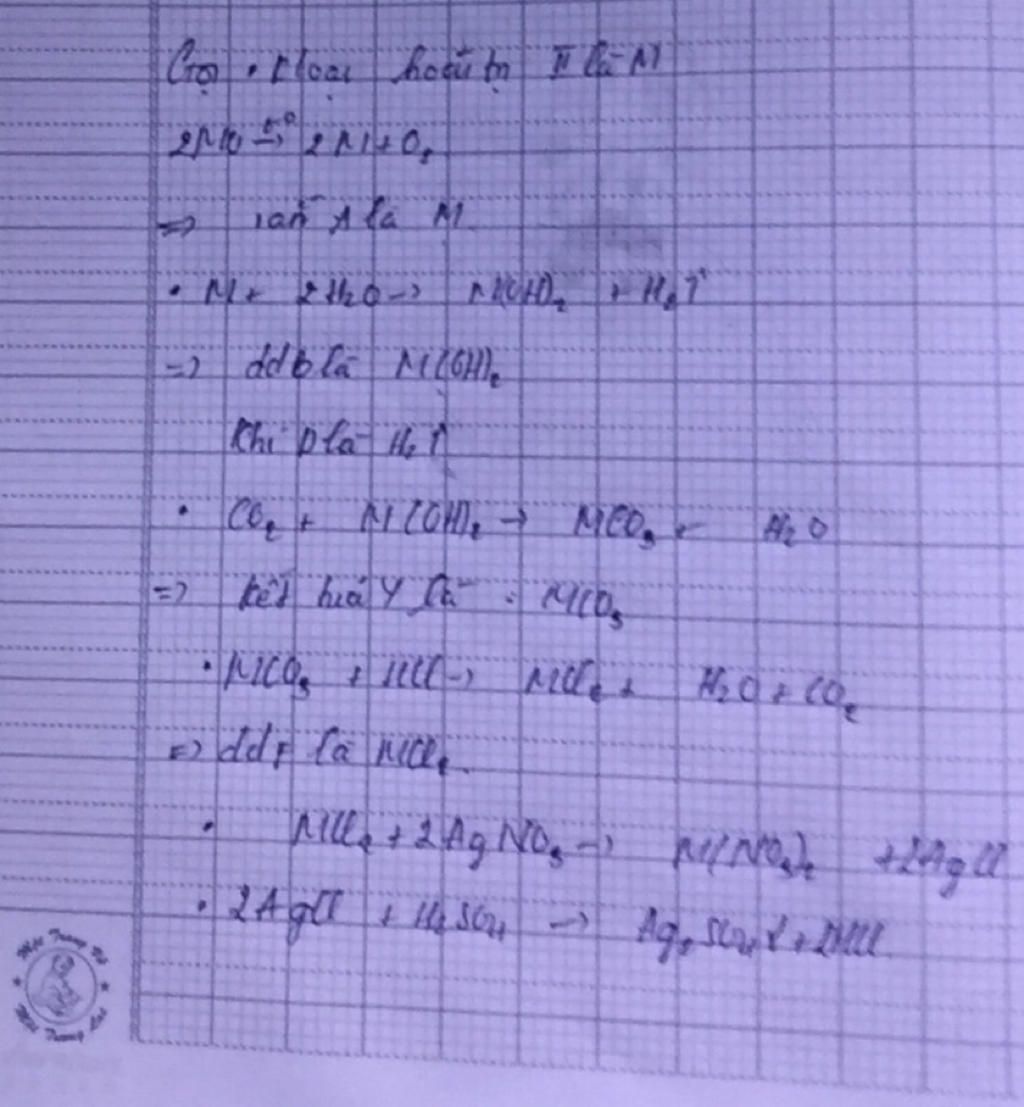 Gọi · kloại hoá trị II là M
2MO t°→ 2M + O₂
=> rắn A là M
· M + 2H₂O → M(OH)₂ + H₂↑
=> dd b là M(OH)₂
Khí D là H₂↑
· CO₂ + M(OH)₂ → MCO₃ + H₂O
=> kết huả Y là : MCO₃
· MCO₃ + HCl → MCl₂ + H₂O + CO₂
=> dd F là MCl₂
· MCl₂ + 2AgNO₃ → M(NO₃)₂ + 2AgCl
· 2AgCl + H₂SO₄ → Ag₂SO₄↓ + 2HCl